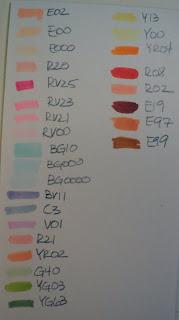 E02
E00
E000
R20
RV25
RV23
RV21
RV00
BG10
BG000
BG0000
BV11
C3
V01
R21
YR02
G40
YG03
YG63
Y13
Y00
YR04
R08
R02
E19
E97
E99